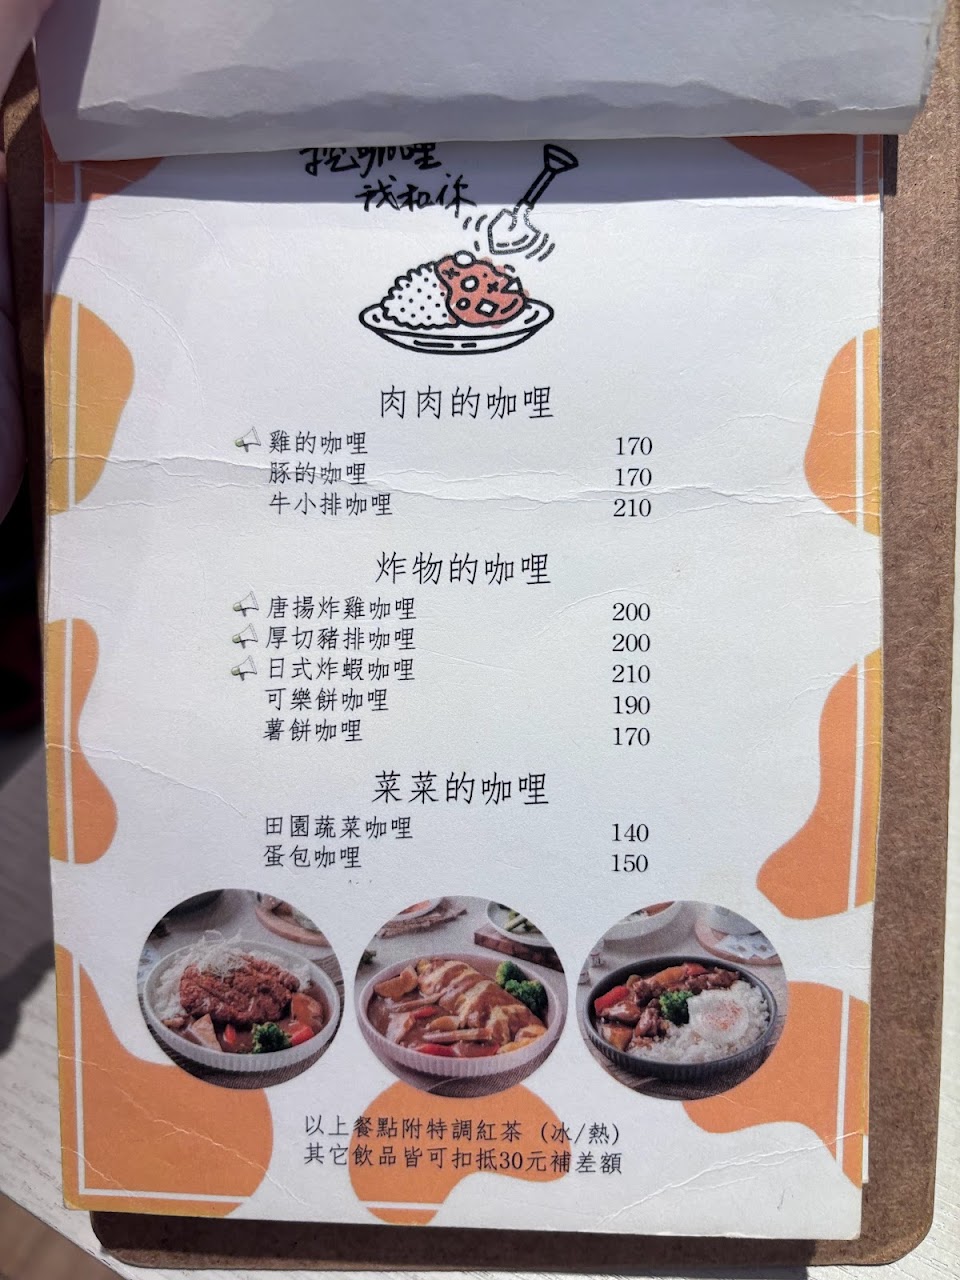 挖咖哩
我和你
肉肉的咖哩
雞的咖哩 170
豚的咖哩 170
牛小排咖哩 210
炸物的咖哩
唐揚炸雞咖哩 200
厚切豬排咖哩 200
日式炸蝦咖哩 210
可樂餅咖哩 190
薯餅咖哩 170
菜菜的咖哩
田園蔬菜咖哩 140
蛋包咖哩 150
以上餐點附特調紅茶 (冰/熱)
其它飲品皆可扣抵30元補差額